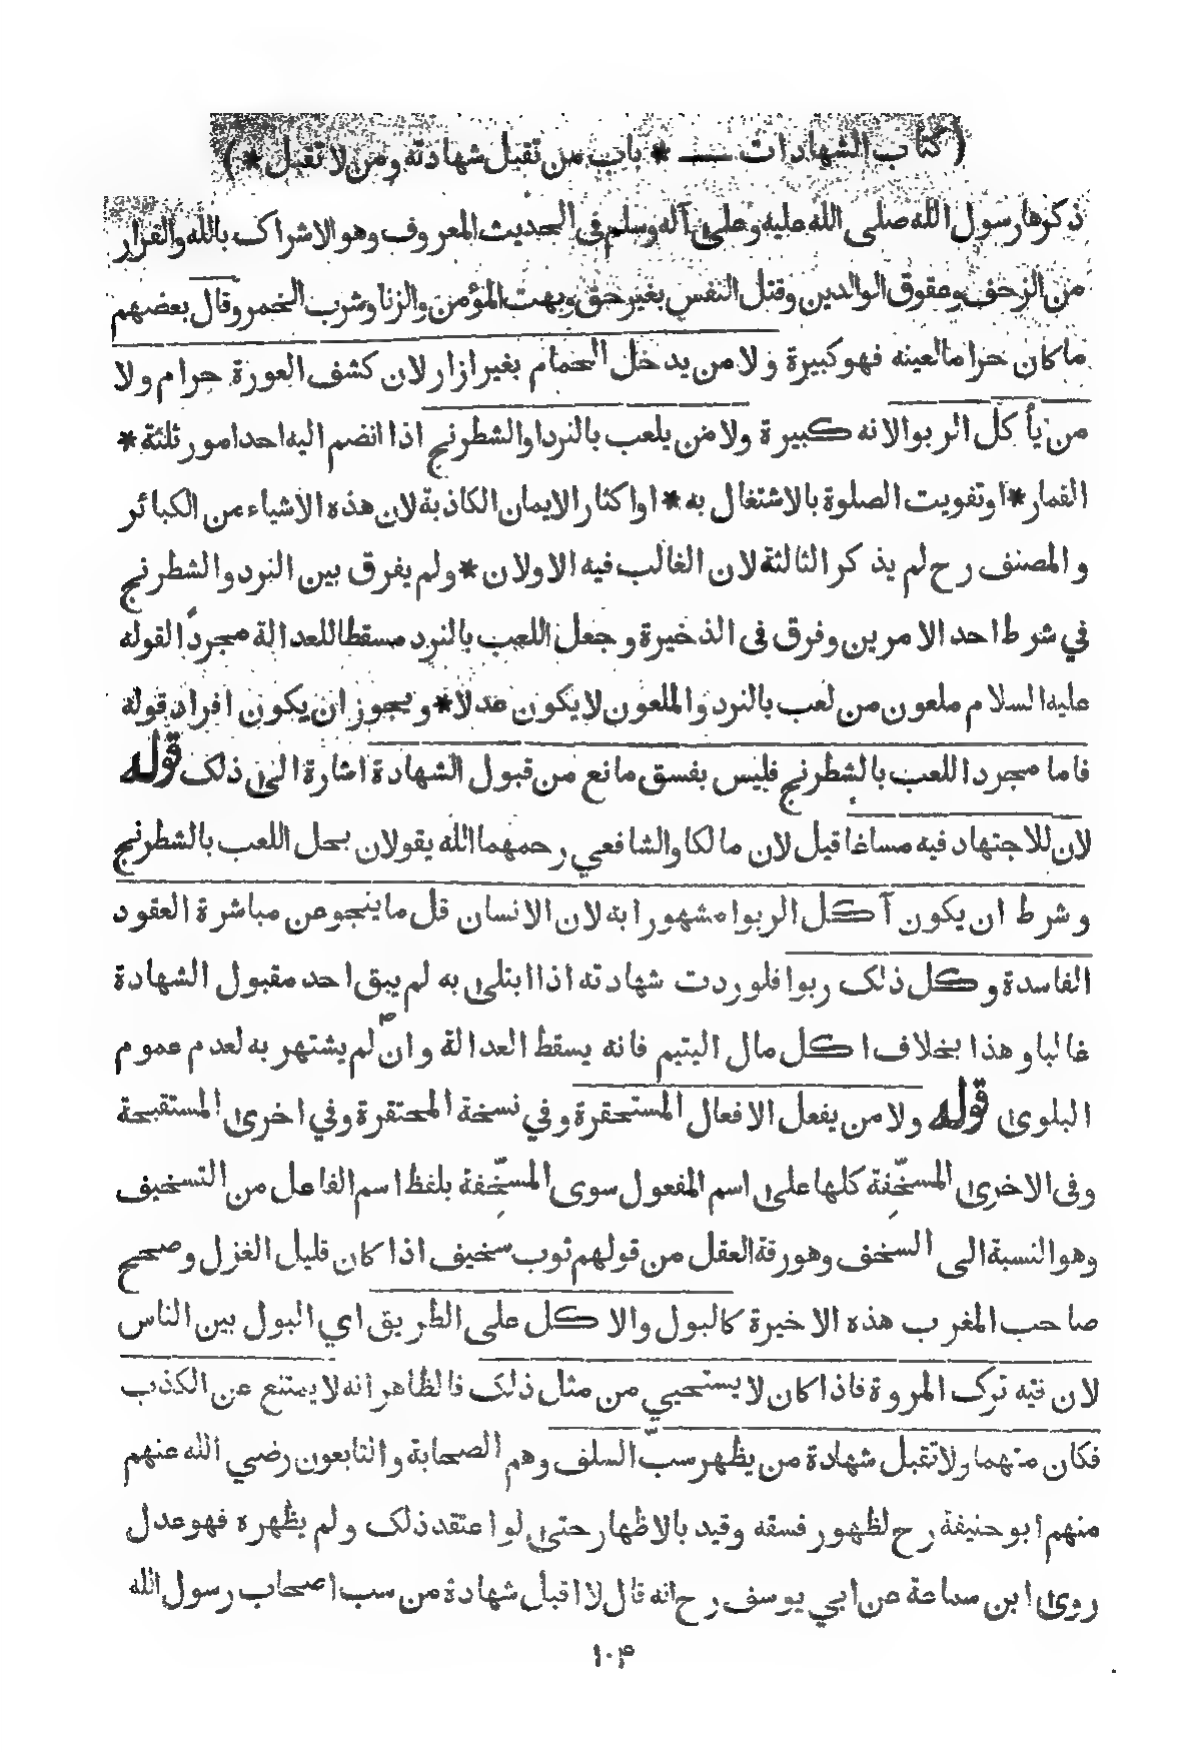 ( كتاب الشهادات ـــــ * باب من تقبل شهادته ومن لا تقبل * )
ذكرها رسول الله صلى الله عليه وعلى آله وسلم في الحديث المعروف وهو الاشراك بالله والفرار
من الزحف وعقوق الوالدين وقتل النفس بغير حق وبهت المؤمن والزنا وشرب الخمر وقال بعضهم
ما كان حراما لعينه فهو كبيرة ولا من يدخل الحمام بغير ازار لان كشف العورة حرام ولا
من يأكل الربوا لانه كبيرة ولا من يلعب بالنرد او الشطرنج اذا انضم اليه احد امور ثلثة *
القمار * او تفويت الصلوة بالاشتغال به * او اكثار الايمان الكاذبة لان هذه الاشياء من الكبائر
والمصنف رح لم يذكر الثالثة لان الغالب فيه الاولان * ولم يفرق بين النرد والشطرنج
في شرط احد الامرين وفرق في الذخيرة وجعل اللعب بالنرد مسقطا للعدالة مجردا لقوله
عليه السلام ملعون من لعب بالنرد والملعون لا يكون عدلا * ويجوز ان يكون افراد قوله
فاما مجرد اللعب بالشطرنج فليس بفسق مانع من قبول الشهادة اشارة الى ذلك قوله
لان للاجتهاد فيه مساغا قيل لان مالكا والشافعي رحمهما الله يقولان بحل اللعب بالشطرنج
وشرط ان يكون آكل الربوا مشهورا به لان الانسان قل ما ينجو عن مباشرة العقود
الفاسدة وكل ذلك ربوا فلو ردت شهادته اذا ابتلى به لم يبق احد مقبول الشهادة
غالبا وهذا بخلاف اكل مال اليتيم فانه يسقط العدالة وان لم يشتهر به لعدم عموم
البلوى قوله ولا من يفعل الافعال المستحقرة وفي نسخة المحتقرة وفي اخرى المستقبحة
وفي الاخرى المسخّفة كلها على اسم المفعول سوى المسخِّفة بلفظ اسم الفاعل من التسخيف
وهو النسبة الى السخف وهو رقة العقل من قولهم ثوب سخيف اذا كان قليل الغزل وصحح
صاحب المغرب هذه الاخيرة كالبول والاكل على الطريق اي البول بين الناس
لان فيه ترك المروة فاذا كان لا يستحيي من مثل ذلك فالظاهر انه لا يمتنع عن الكذب
فكان متهما ولا تقبل شهادة من يظهر سبّ السلف وهم الصحابة والتابعون رضي الله عنهم
منهم ابو حنيفة رح لظهور فسقه وقيد بالاظهار حتى لو اعتقد ذلك ولم يظهره فهو عدل
روى ابن سماعة عن ابي يوسف رح انه قال لا اقبل شهادة من سب اصحاب رسول الله
١٠۴